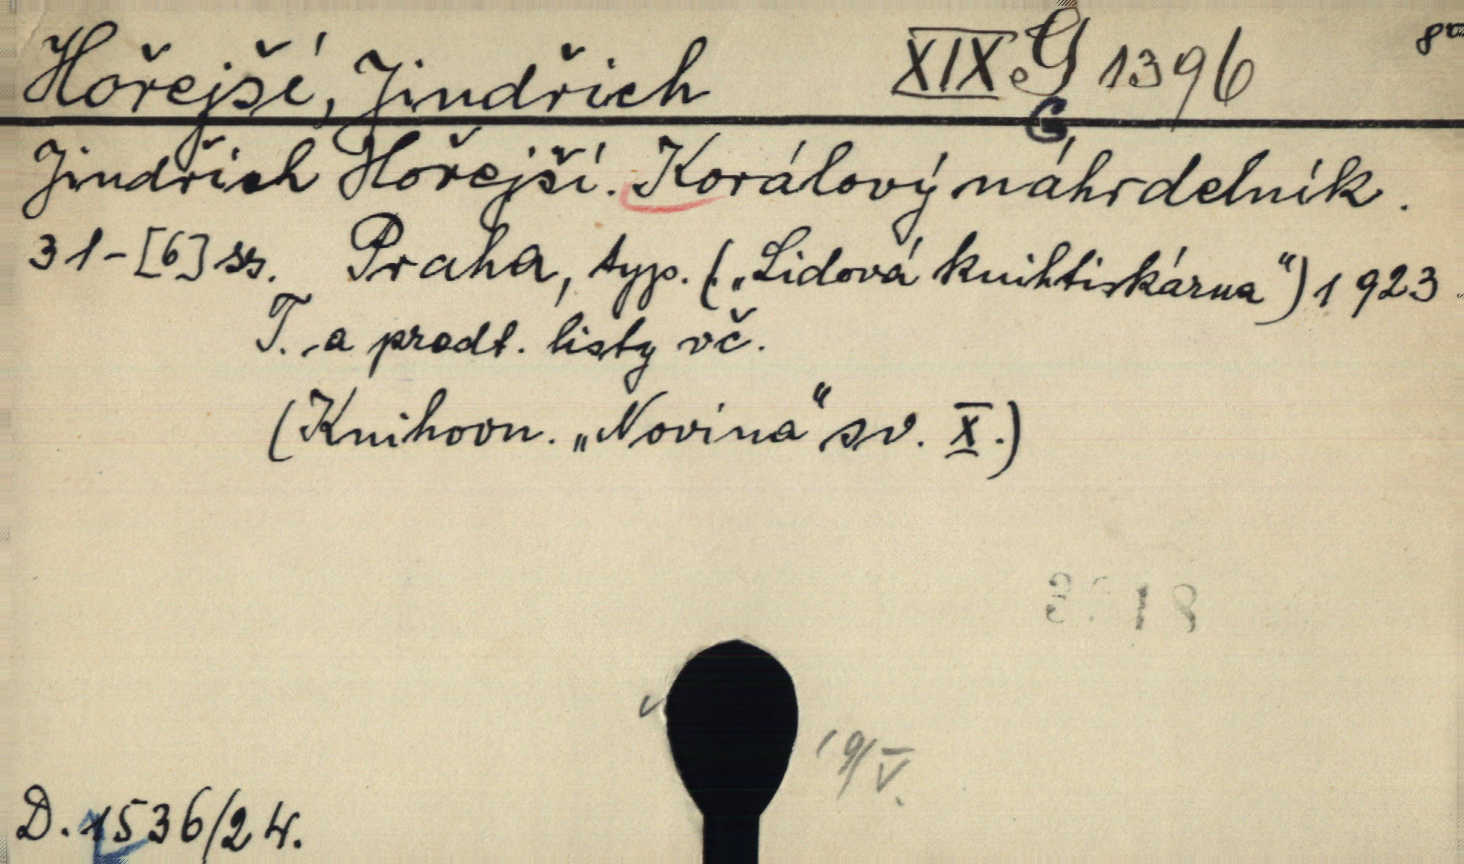 Hořejší, Jindřich XIX G 1396 8°
G
Jindřich Hořejší. Korálový náhrdelník.
31-[6] ss. Praha, typ. („Lidová knihtiskárna“) 1923
T. a předt. listy vč.
(Knihovn. „Novina“ sv. X.)
19/V.
D. 1536/24.